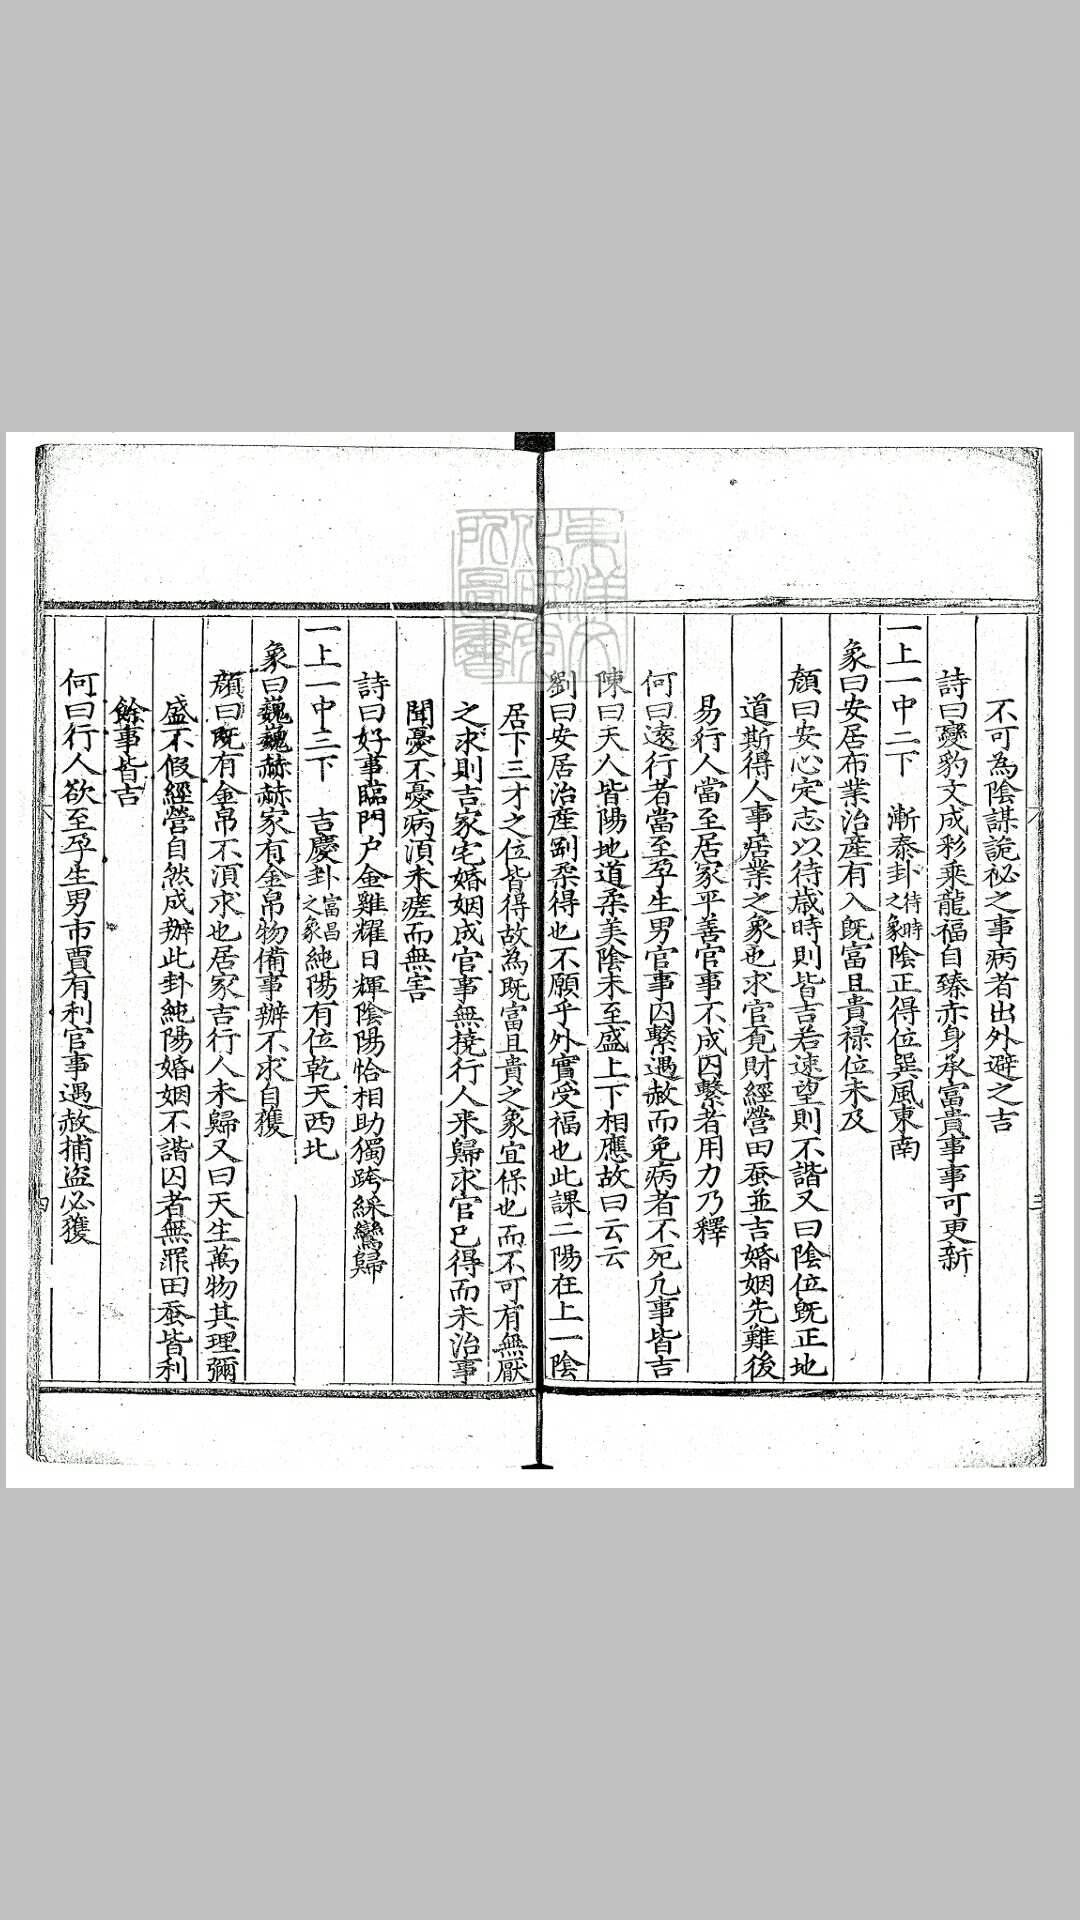 不可為陰謀詭祕之事病者出外避之吉
詩曰變豹文成彩乗龍福自臻亦身承富貴事事可更新
一上一中二下　漸泰卦待時之象陰正得位巽風東南
象曰安居布業治產有入既富且貴祿位未及
顏曰安心定志以待歲時則皆吉若速望則不諧又曰陰位既正地
道斯得人事居業之象也求官覓財經營田蚕並吉婚姻先難後
易行人當至居家平善官事不成囚繫者用力乃釋
何曰遠行者當至孕生男官事囚繫遇赦而免病者不死凡事皆吉
陳曰天人皆陽地道柔美陰未至盛上下相應故曰云云
劉曰安居治產剛柔得也不願乎外實受福也此課二陽在上一陰
居下三才之位皆得故為既富且貴之象宜保也而不可有無厭
之求則吉家宅婚姻成官事無撓行人來歸求官已得而未治事
聞憂不憂病湏未瘥而無害
詩曰好事臨門户金雞耀日輝陰陽恰相助獨跨綵鸞歸
一上一中三下　吉慶卦富昌之象純陽有位乾天西北
象曰巍巍赫赫家有金帛物備事辦不求自獲
顏曰既有金帛不湏求也居家吉行人未歸又曰天生萬物其理彌
盛不假經營自然成辦此卦純陽婚姻不諧囚者無罪田蚕皆利
餘事皆吉
何曰行人欲至孕生男市賈有利官事遇赦捕盜必獲